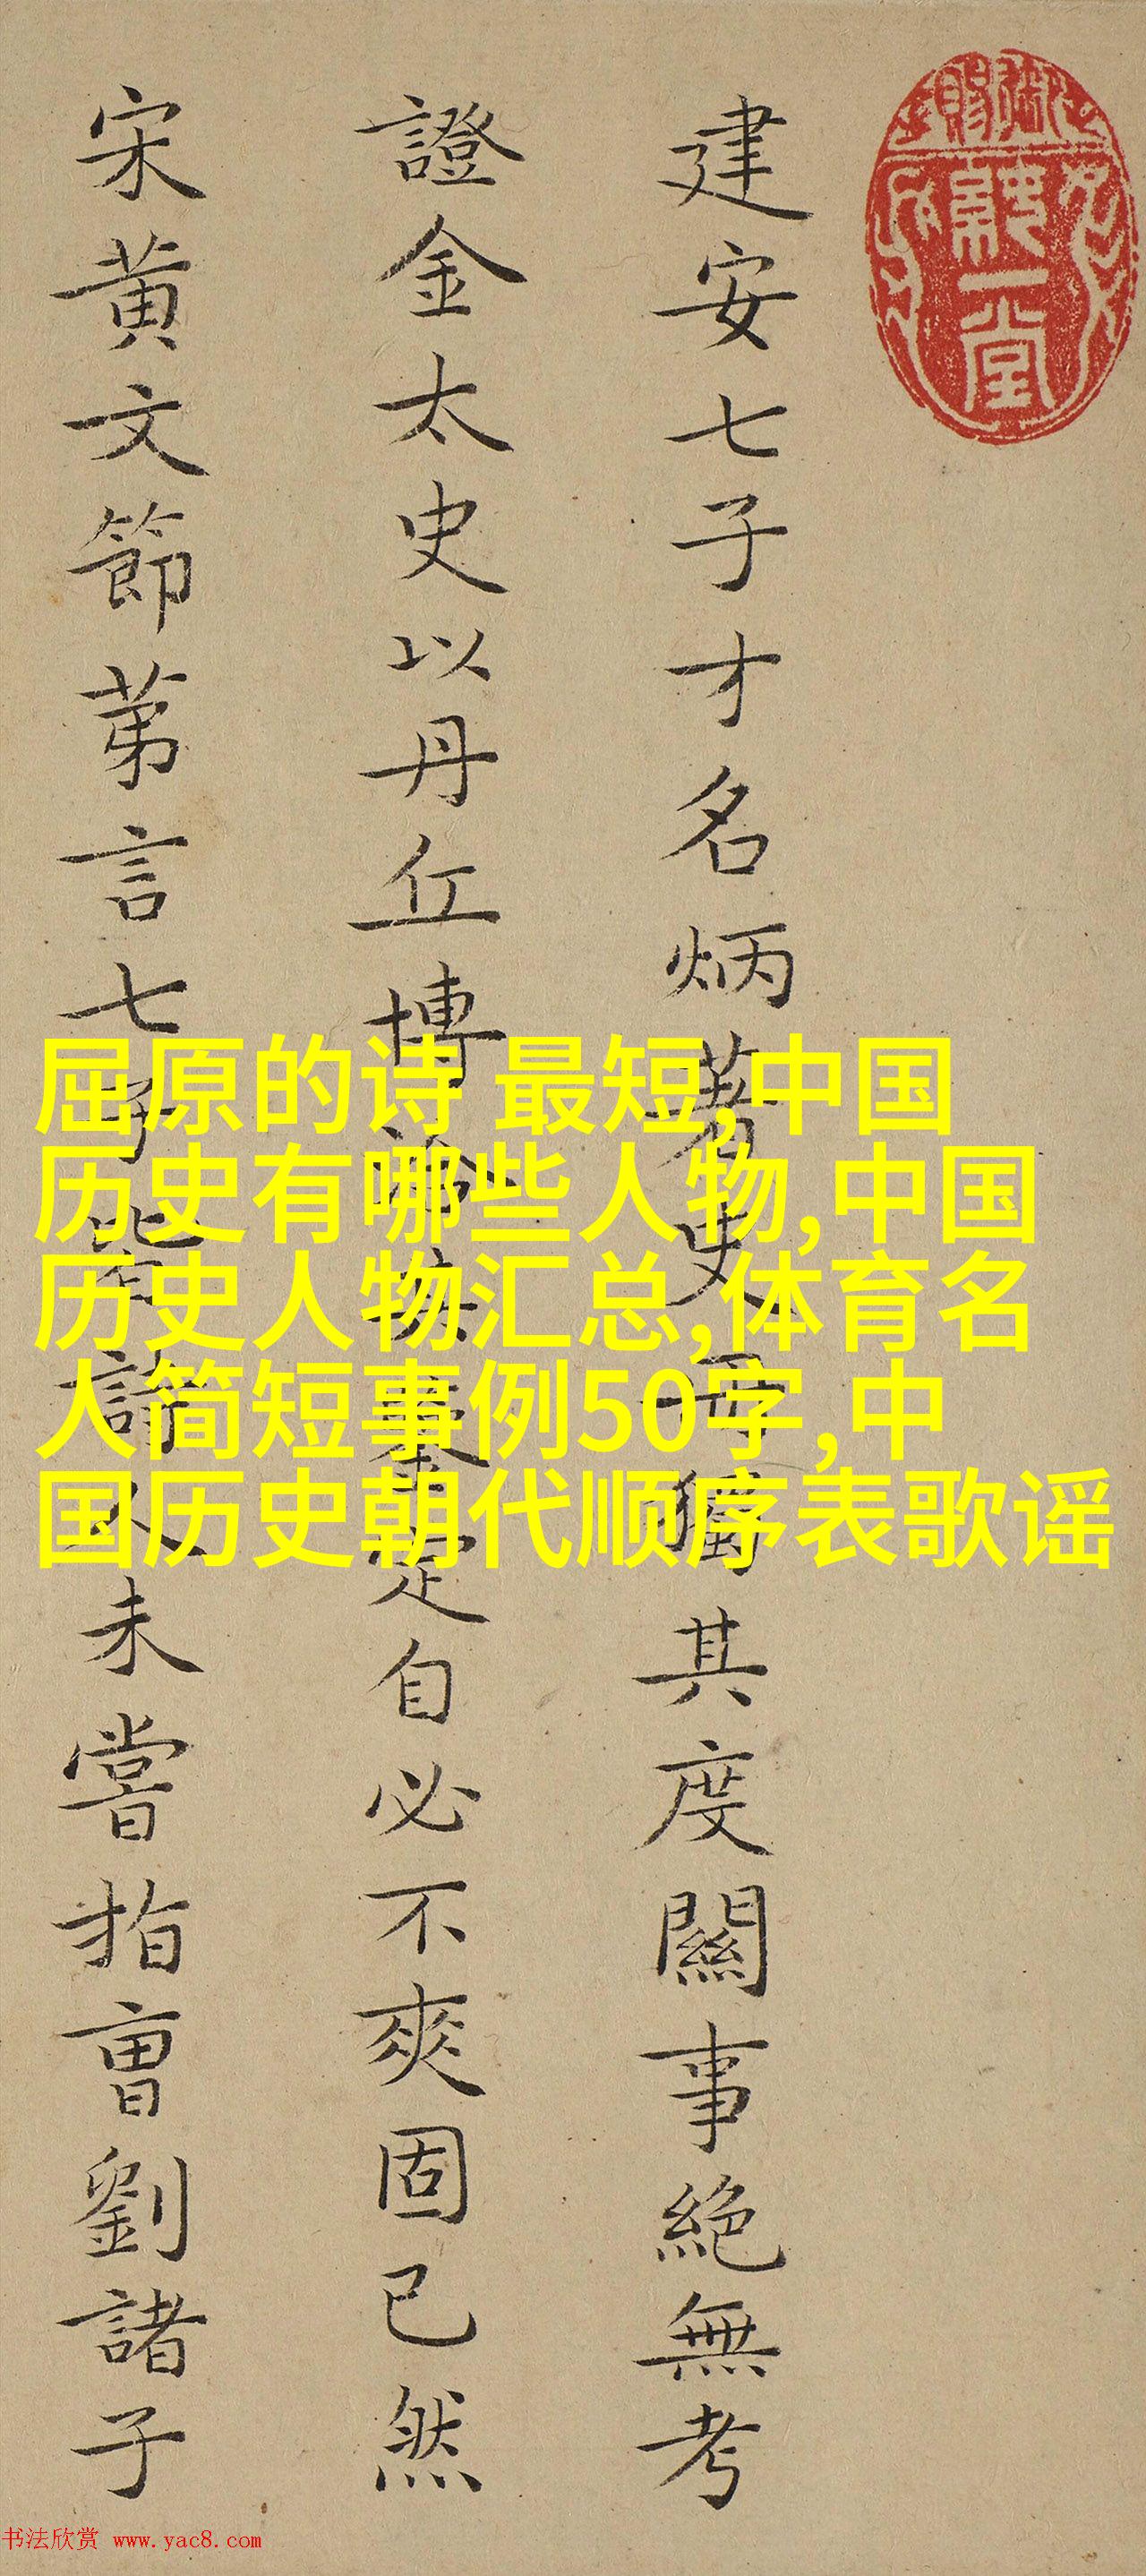 建安七子才名炳著史冊獨其度關事絕無考
證金太史以丹丘博洽其鑒定自必不爽固已然
宋黃文節苐言七子皆詩人未嘗指曹劉諸子
屈原的诗 最短,中国
历史有哪些人物,中国
历史人物汇总,体育名
人简短事例50字,中
国历史朝代顺序表歌谣
书法欣赏 www.yac8.com